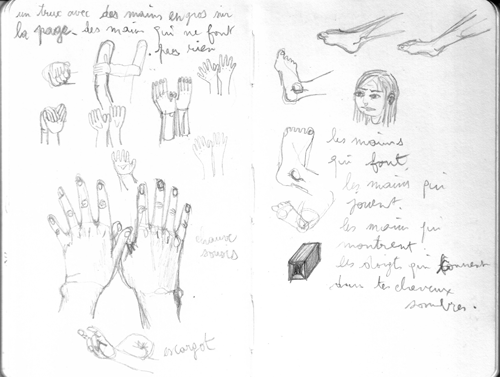 un truc avec des mains en gros sur
la page. des mains qui ne font
pas rien
chauve
souris
escargot
les mains
qui font,
les mains qui
jouent.
les main qui
montrent
les doigts qui tournent
dans tes cheveux
sombres.